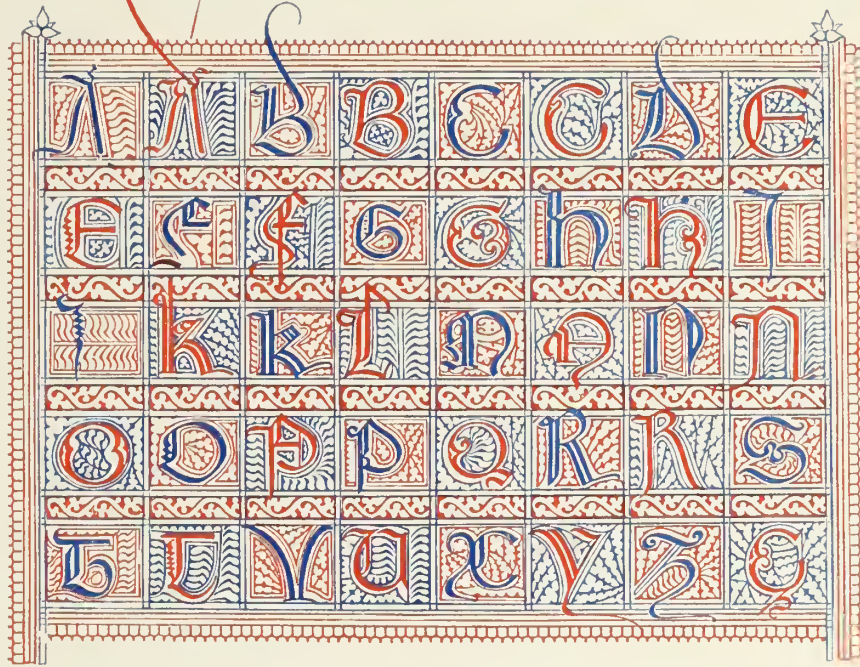 A A B B C C D E
E F F G G h h I
I k k L M M N N
O O P P Q R R S
T T V U X Y Z